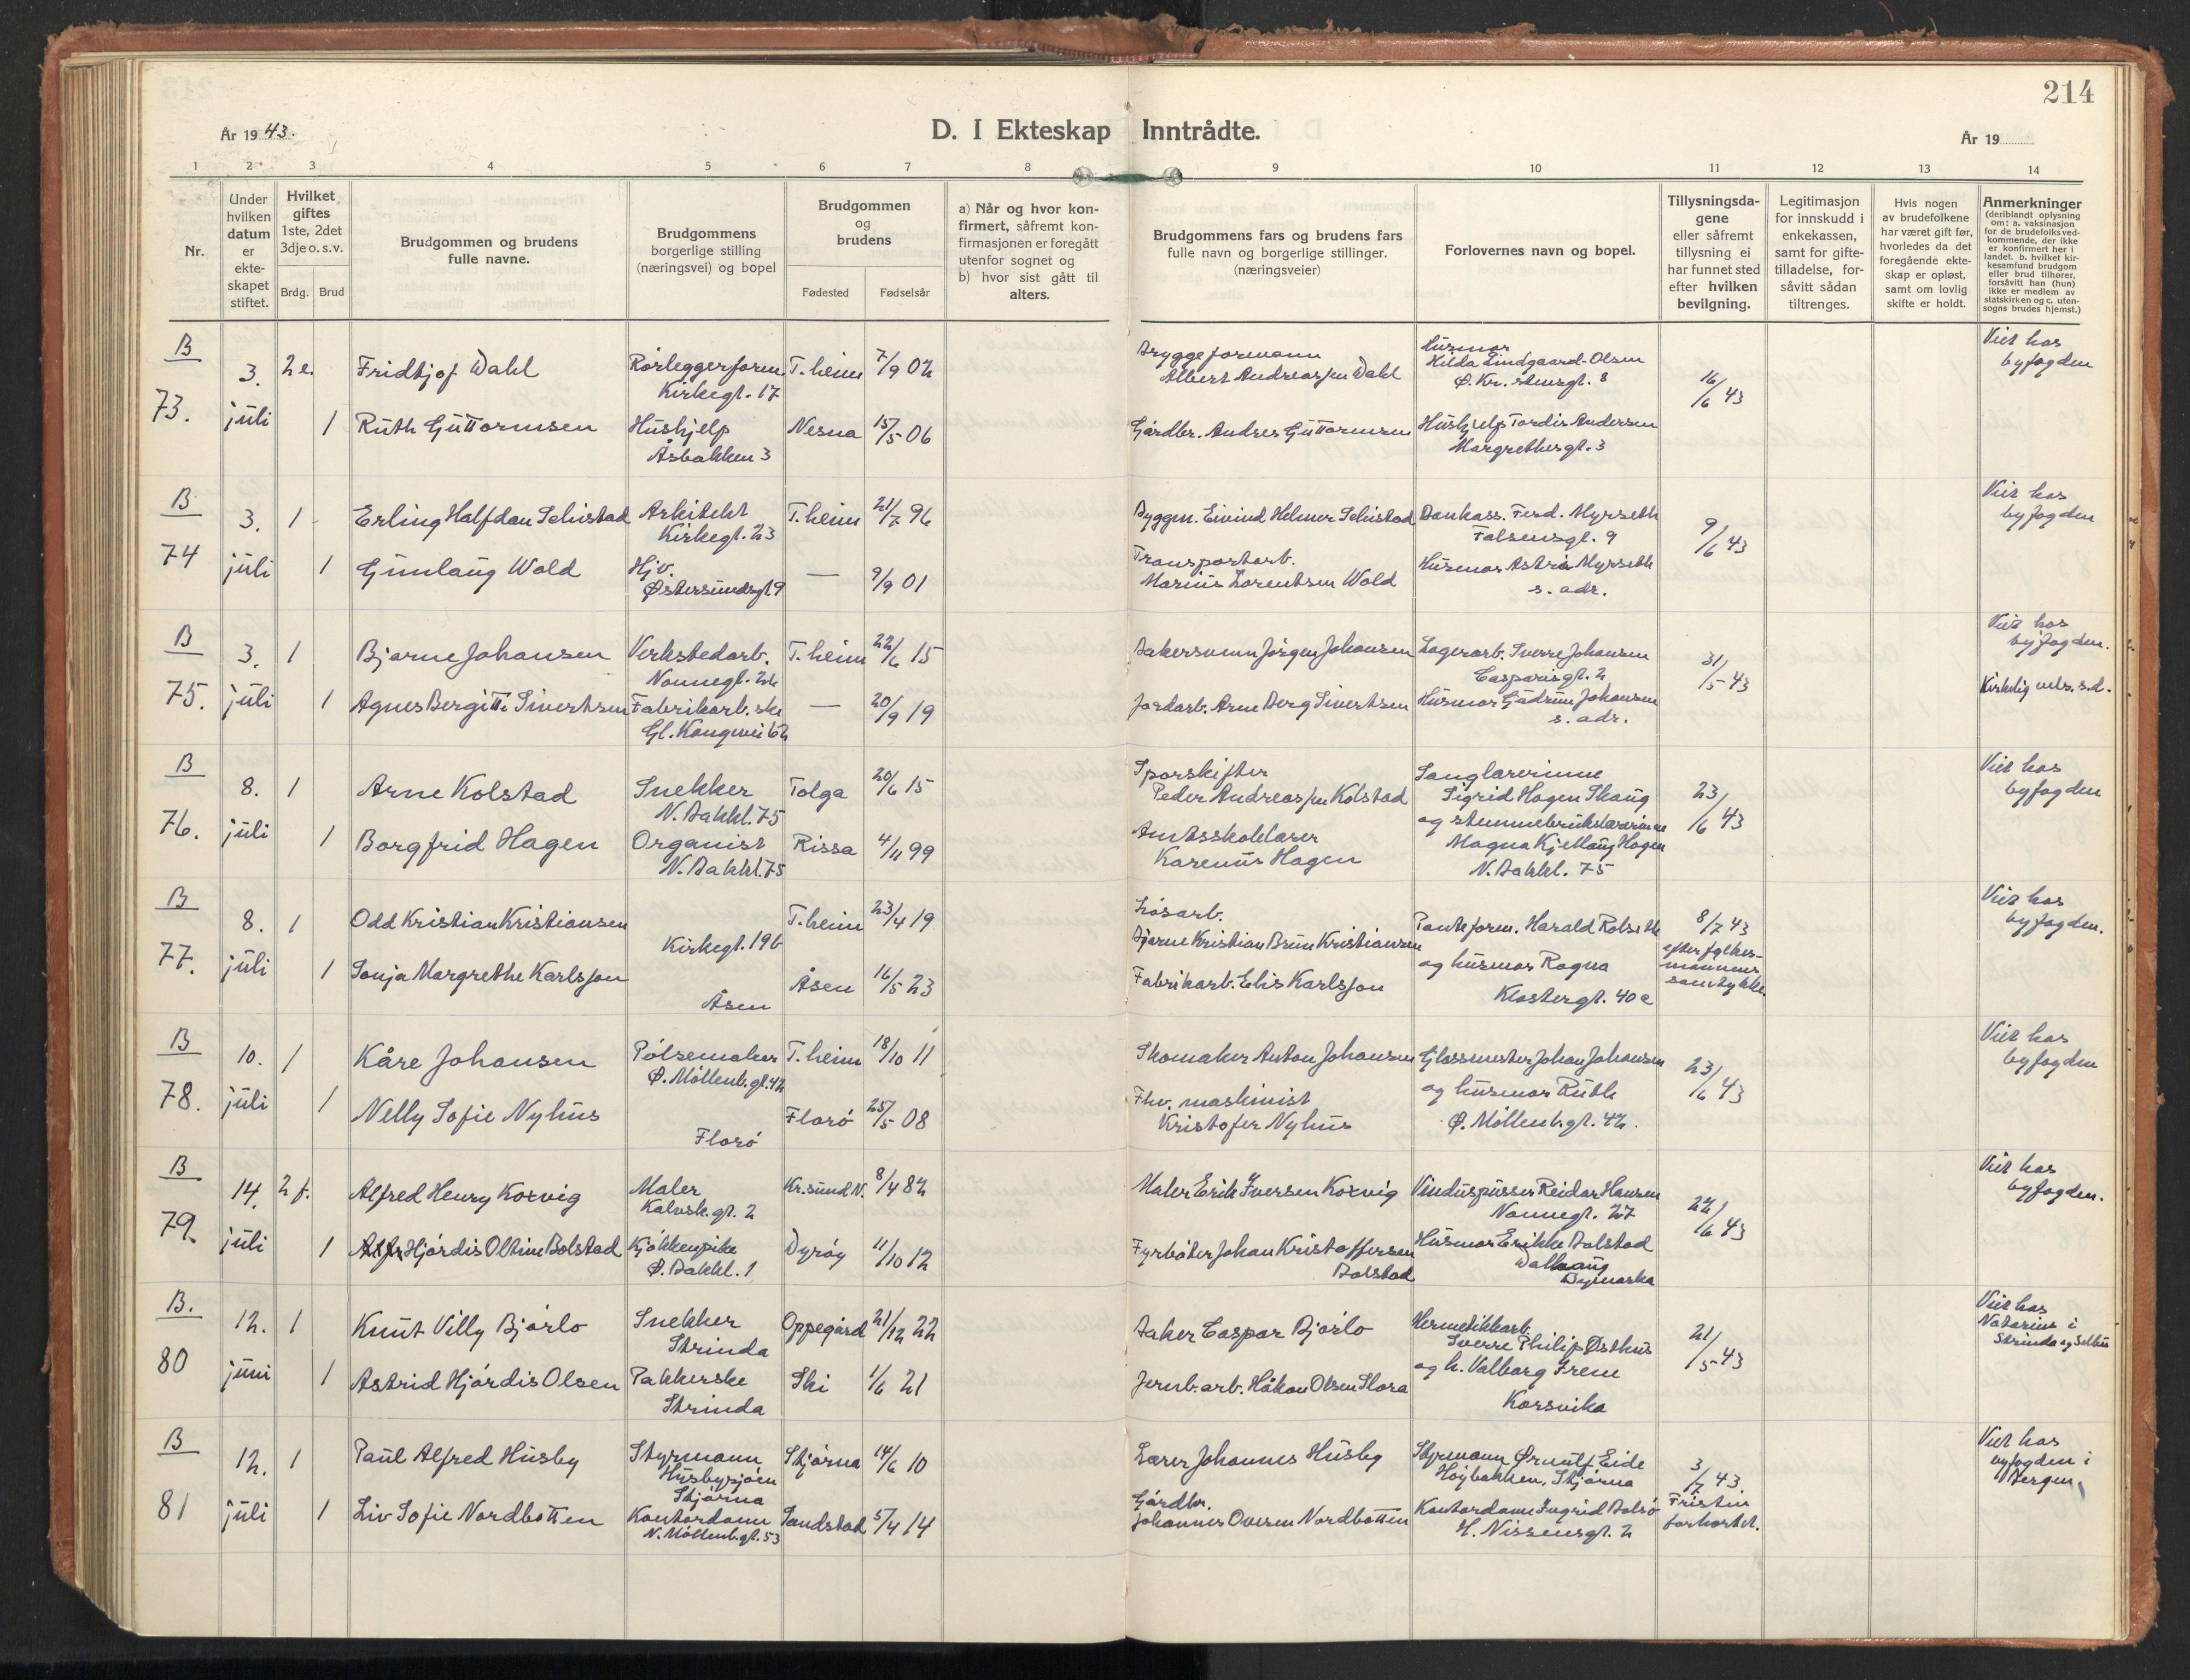 214
År 1943.
D. I Ekteskap Inntrådte.
År 19
1 2 3 4 5 6 7 8 9 10 11 12 13 14
Nr.
Under hvilken datum er ekteskapet stiftet.
Hvilket giftes 1ste, 2det 3dje o. s. v.
Brdg. Brud
Brudgommen og brudens fulle navne.
Brudgommens borgerlige stilling (næringsvei) og bopel
Brudgommen og brudens
Fødested Fødselsår
a) Når og hvor konfirmert, såfremt konfirmasjonen er foregått utenfor sognet og
b) hvor sist gått til alters.
Brudgommens fars og brudens fars fulle navn og borgerlige stillinger. (næringsveier)
Forlovernes navn og bopel.
Tillysningsdagene eller såfremt tillysning ei har funnet sted efter hvilken bevilgning.
Legitimasjon for innskudd i enkekassen, samt for giftetilladelse, forsåvitt sådan tiltrenges.
Hvis nogen av brudefolkene har været gift før, hvorledes da det foregående ekteskap er opløst, samt om lovlig skifte er holdt.
Anmerkninger (deriblandt oplysning om: a. vaksinasjon for de brudefolks vedkommende, der ikke er konfirmert her i landet. b. hvilket kirkesamfund brudgom eller brud tilhører, forsåvitt han (hun) ikke er medlem av statskirken og c. utensogns brudes hjemst.)
B
73.
3. juli
2 e.
Fridtjof Dahl
Rørleggerform.
Kirkegt. 17
T.heim 7/9 02
Bryggeformann
Albert Andreassen Dahl
Husmor
Hilda Lindgaard-Olsen
Ø. Kr. stensgt. 8
16/6 43
Viet hos
byfogden
1
Ruth Guttormsen
Hushjelp
Åsbakken 3
Nesna 15/5 06
Gårdbr. Andres Guttormsen
Hushjelp Tordis Andersen
Margrethesgt. 3
B
74
3. juli
1
Erling Halfdan Schistad
Arkitekt
Kirkegt. 23
T.heim 21/7 96
Byggm. Eivind Helmer Schistad
Bankass. Ferd. Myrseth
Falsensgt. 9
9/6 43
Viet hos
byfogden
1
Gunlaug Wold
Hjv.
Østersundsgt. 9
— 9/9 01
Transportarb.
Marius Lorentsen Wold
Husmor Astrid Myrseth
s. adr.
B
75.
3. juli
1
Bjarne Johansen
Verkstedarb.
Nonnegt. 24
T.heim 22/6 15
Bakersvenn Jørgen Johansen
Lagerarb. Sverre Johansen
Casparisgt. 2
31/5 43
Viet hos
byfogden.
Kirkelig vels. s.d.
1
Agnes Bergitte Sivertsen
Fabrikarb.ske
Gl. Kongevei 62
— 20/9 19
Jordarb. Arne Berg Sivertsen
Husmor Gudrun Johansen
s. adr.
B
76.
8. juli
1
Arne Kolstad
Snekker
N. Bakkl. 75
Tolga 20/6 15
Sporskifter
Peder Andreassen Kolstad
Sanglærerinne
Sigrid Hagen Skaug
og stemmebrukslærerinne
Magna Kjellaug Hagen
N. Bakkl. 75
23/6 43
Viet hos
byfogden
1
Borgfrid Hagen
Organist
N. Bakkl. 75
Rissa 4/11 99
Amtsskolelærer
Karenus Hagen
B
77.
8. juli
1
Odd Kristian Kristiansen
Kirkegt. 19b
T.heim 23/4 19
Løsarb.
Bjarne Kristian Brun Kristiansen
Panteform. Harald Rolseth
og husmor Ragna
Klostergt. 40 c
8/7 43
efter fylkes-
mannens
samtykke.
Viet hos
byfogden.
1
Sonja Margrethe Karlsson
Åsen
Åsen 16/5 23
Fabrikarb. Elis Karlsson
B
78.
10. juli
1
Kåre Johansen
Pølsemaker
Ø. Møllenb.gt. 42
T.heim 18/10 11
Skomaker Anton Johansen
Glassmester Johan Johansen
og husmor Ruth
Ø. Møllenb.gt. 42.
23/6 43
Viet hos
byfogden
1
Nelly Sofie Nyhus
Florø
Florø 25/5 08
Fhv. maskinist
Kristofer Nyhus
B
79.
14. juli
2 f.
Alfred Henry Korvig
Maler
Kalvsk.gt. 2
Kr.sund N. 8/4 82
Maler Erik Iversen Korvig
Vinduspusser Reidar Hansen
Nonnegt. 27
22/6 43
Viet hos
byfogden.
1
Hjørdis Oltine Bolstad
Kjøkkenpike
Ø. Bakkl. 1
Dyrøy 11/10 12
Fyrbøter Johan Kristoffersen
Bolstad
Husmor Erikke Bolstad
Bymarka
B.
80
12. juni
1
Knut Villy Bjørlo
Snekker
Strinda
Oppegård 21/12 22
Baker Caspar Bjørlo
Hermetikkarb.
Sverre Philip Østhus
og h. Valborg Irene
Korsvika
21/5 43
Viet hos
Notarius i
Strinda og Selbu
1
Astrid Hjørdis Olsen
Pakkerske
Strinda
Ski 1/6 21
Jernb.arb. Håkon Olsen Flora
B
81
12. juli
1
Paul Alfred Husby
Styrmann
Husbysjøen
Stjørna
Stjørna 14/6 10
Lærer Johannes Husby
Styrmann Ørnulf Eide
Høybakken, Stjørna
3/7 43
Fristen
forkortet.
Viet hos
byfogden i
Bergen
1
Liv Sofie Nordbotten
Kontordame
N. Møllenb.gt. 53
Sandstad 5/4 14
Gårdbr.
Johannes Ovesen Nordbotten
Kontordame Ingrid Bolsø
H. Nissensgt. 2